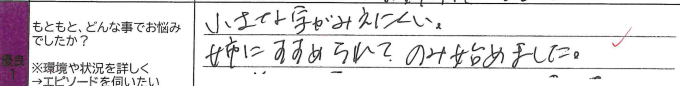 もともと、どんな事でお悩み
でしたか？
※環境や状況を詳しく
→エピソードを伺いたい
小さな字がみえにくい。
姉にすすめられて のみ始めました。